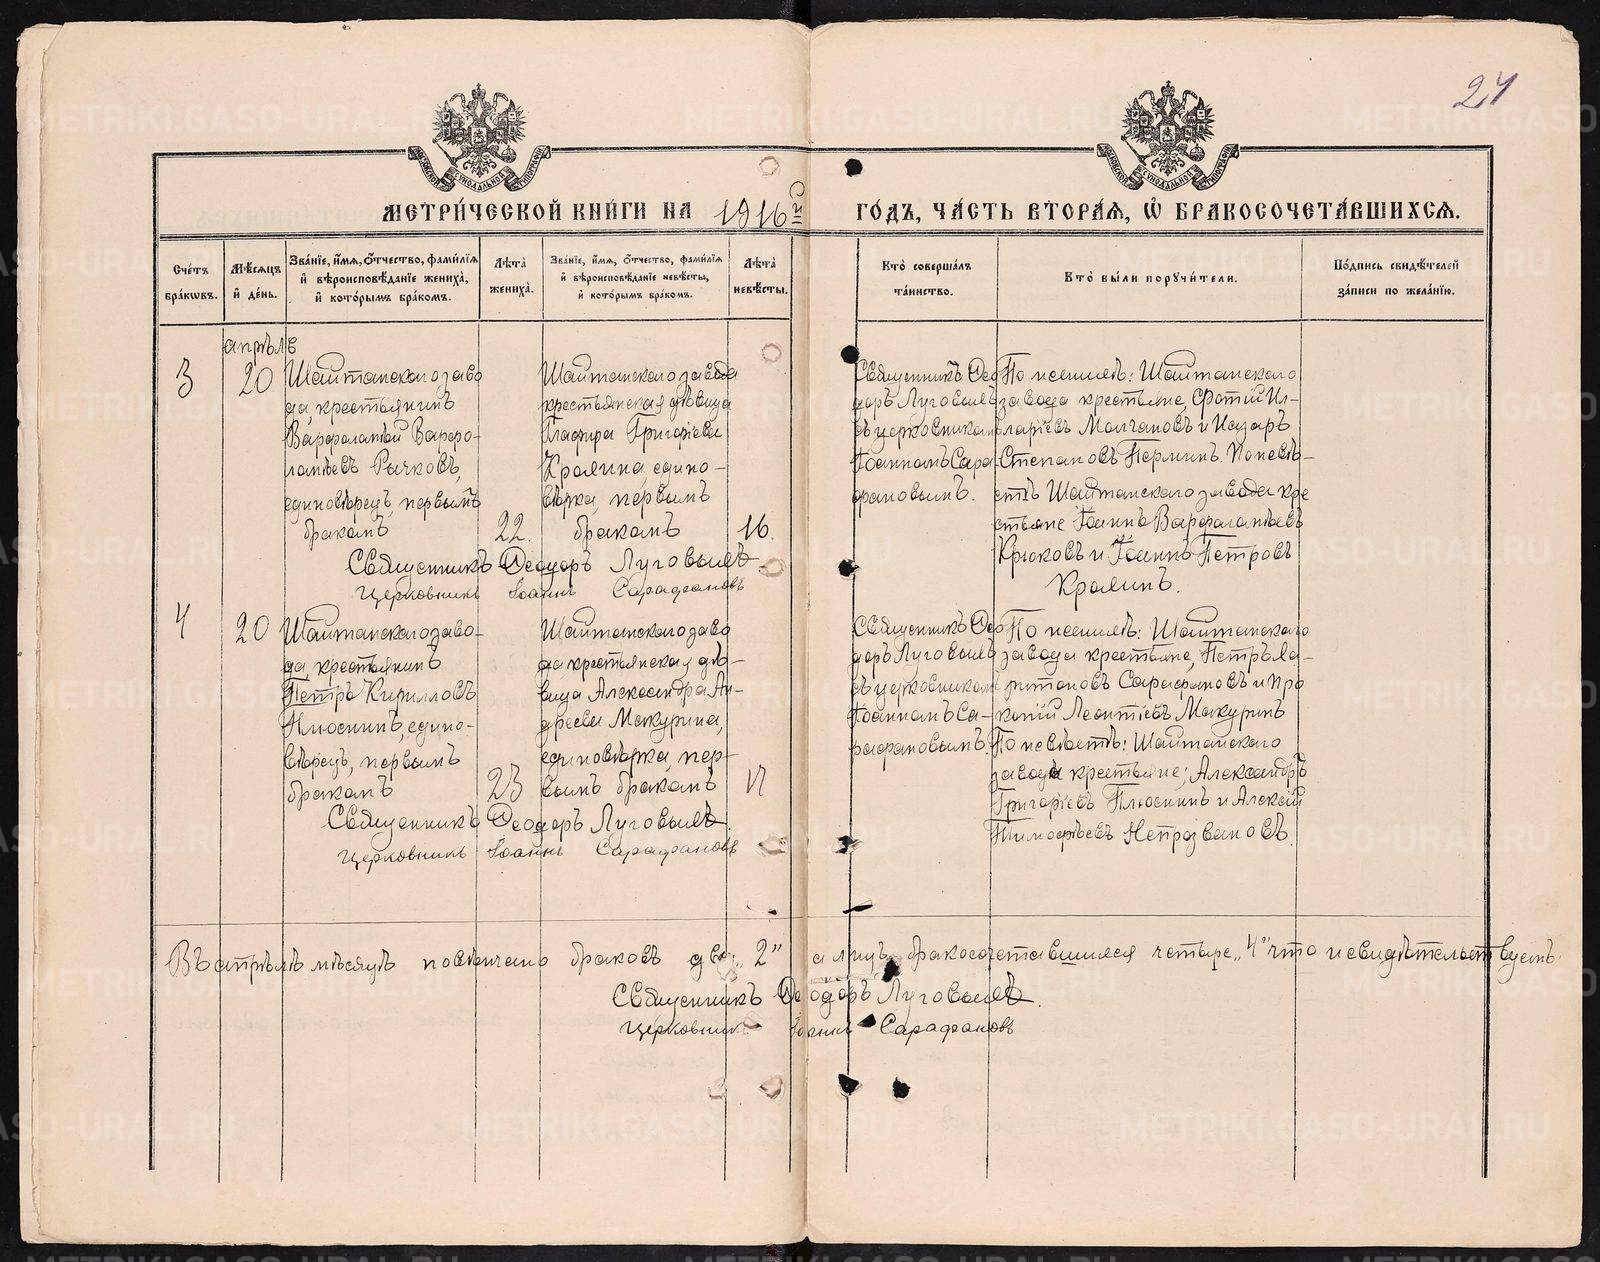 24
МОСКОВСКОЙ СѴНОДАЛЬНОЙ ТИПОГРАФІИ
МОСКОВСКОЙ СѴНОДАЛЬНОЙ ТИПОГРАФІИ
МЕТРИ́ЧЕСКОЙ КНИ́ГИ НА 1916й ГО́ДЪ, ЧА́СТЬ ВТОРА́Я, Ѡ҆ БРАКОСОЧЕТА́ВШИХСЯ.
Сче́тъ бра́кωвъ.
Мѣ́сяцъ и҆ де́нь.
Зва́нїе, и҆́мя, ѻ҆́тчество, фами́лїя и҆ вѣроисповѣ́данїе жениха̀, и҆ кото́рымъ бра́комъ.
Лѣ́та̀ жениха̀.
Зва́нїе, и҆́мя, ѻ҆́тчество, фами́лїя и҆ вѣроисповѣ́данїе невѣ́сты, и҆ кото́рымъ бра́комъ.
Лѣ́та̀ невѣ́сты.
Кто̀ соверша́лъ та́инство.
Кто̀ бы́ли порꙋчи́тели.
По́дпись свидѣ́телей за́писи по жела́нїю.
апрѣль
3
20
Шайтанскаго заво
да, крестьянинъ
Варфаламѣй Варфо-
ламѣевъ Рычковъ,
единовѣрецъ, первымъ
бракомъ
22.
Шайтанскаго завода
крестьянская дѣвица
Глафира Григорїева
Кралина, едино-
вѣрка, первымъ
бракомъ
16.
Священникъ Ѳео
доръ Луговыхъ
съ церковникомъ
Іоанномъ Сара-
фановымъ.
По женихѣ: Шайтанскаго
завода крестьяне, Фотій Ил-
ларіевъ Молчановъ и Назаръ
Степановъ Перминъ. По невѣ-
стѣ Шайтанскаго завода кре
стьяне Іоаннъ Варфаламѣевъ
Крюковъ и Іоаннъ Петровъ
Кралинъ.
Священникъ Ѳеодоръ Луговыхъ.
Церковникъ Іоаннъ Сарафановъ
4
20
Шайтанскаго заво-
да, крестьянинъ
Петръ Кирилловъ
Плюснинъ, едино-
вѣрецъ, первымъ
бракомъ
23
Шайтанскаго заво
да крестьянская дѣ-
вица Александра Ан-
дреева Мокурина,
единовѣрка, пер-
вымъ бракомъ
17
Священникъ Ѳео
доръ Луговыхъ
съ церковникомъ
Іоанномъ Са-
рафановымъ
По женихѣ: Шайтанскаго
завода крестьяне, Петръ Ха-
ритоновъ Сарафановъ и Про
копій Леонтіевъ Мокуринъ
По невѣстѣ: Шайтанскаго
завода крестьяне; Александръ
Григорїевъ Плюснинъ и Алексій
Тимофѣевъ Непрозвановъ.
Священникъ Ѳеодоръ Луговыхъ.
Церковникъ Іоаннъ Сарафановъ
Въ апрѣлѣ мѣсяцѣ повѣнчано браковъ два „2" а лицъ бракосочетавшихся четыре „4" что и свидѣтельствуемъ.
Священникъ Ѳеодоръ Луговыхъ.
Церковникъ Іоаннъ Сарафановъ
METRIKI.GASO-URAL.RU